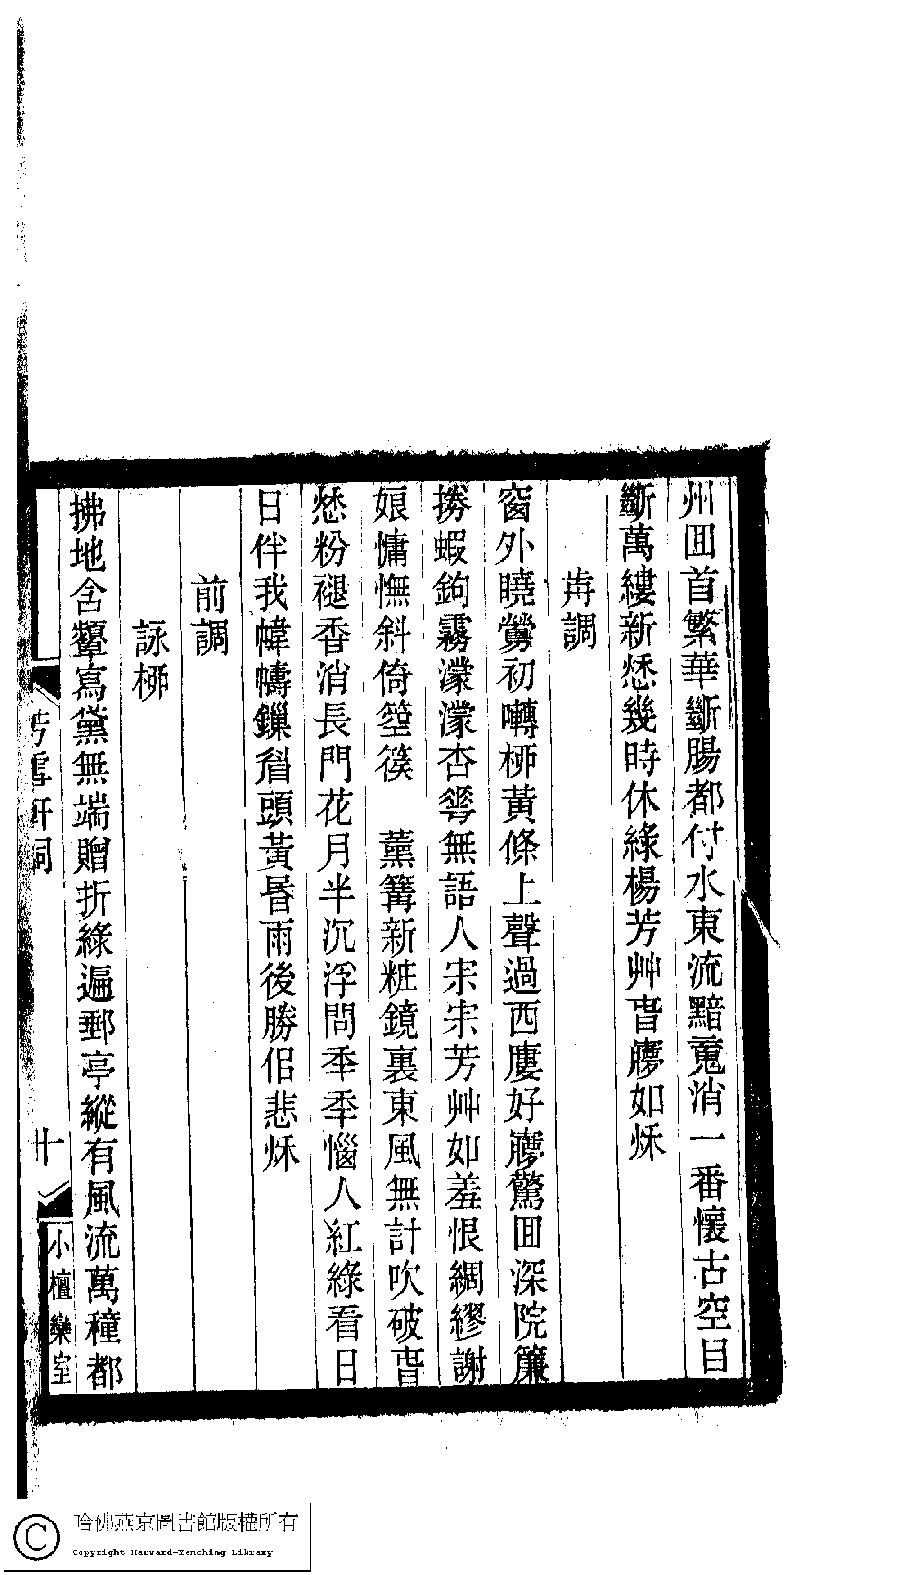 州囬首繁華斷腸都付水東流黯䰟消一番懷古空目
斷萬縷新愁幾時休綠楊芳艸旾㾿如秌
歬調
窗外曉鶯初囀桺黃條上聲過西廔好㾿驚囬深院簾
搒蝦鉤霧濛濛杏蕚無語人宋宋芳艸如羞恨綢繆謝
娘慵憮斜倚箜篌　薰篝新粧鏡裏東風無計吹破旾
愁粉褪香消長門花月半沉浮問秊秊惱人紅綠看日
日伴我幃幬鏁眉頭黃昏雨後勝佀悲秌
前調
詠桺
拂地含顰寫黛無端贈折綠遍郵亭縱有風流萬種都
芳雪軒詞
十
小檀欒室
哈佛燕京圖書館版權所有
Copyright Harvard-Yenching Library